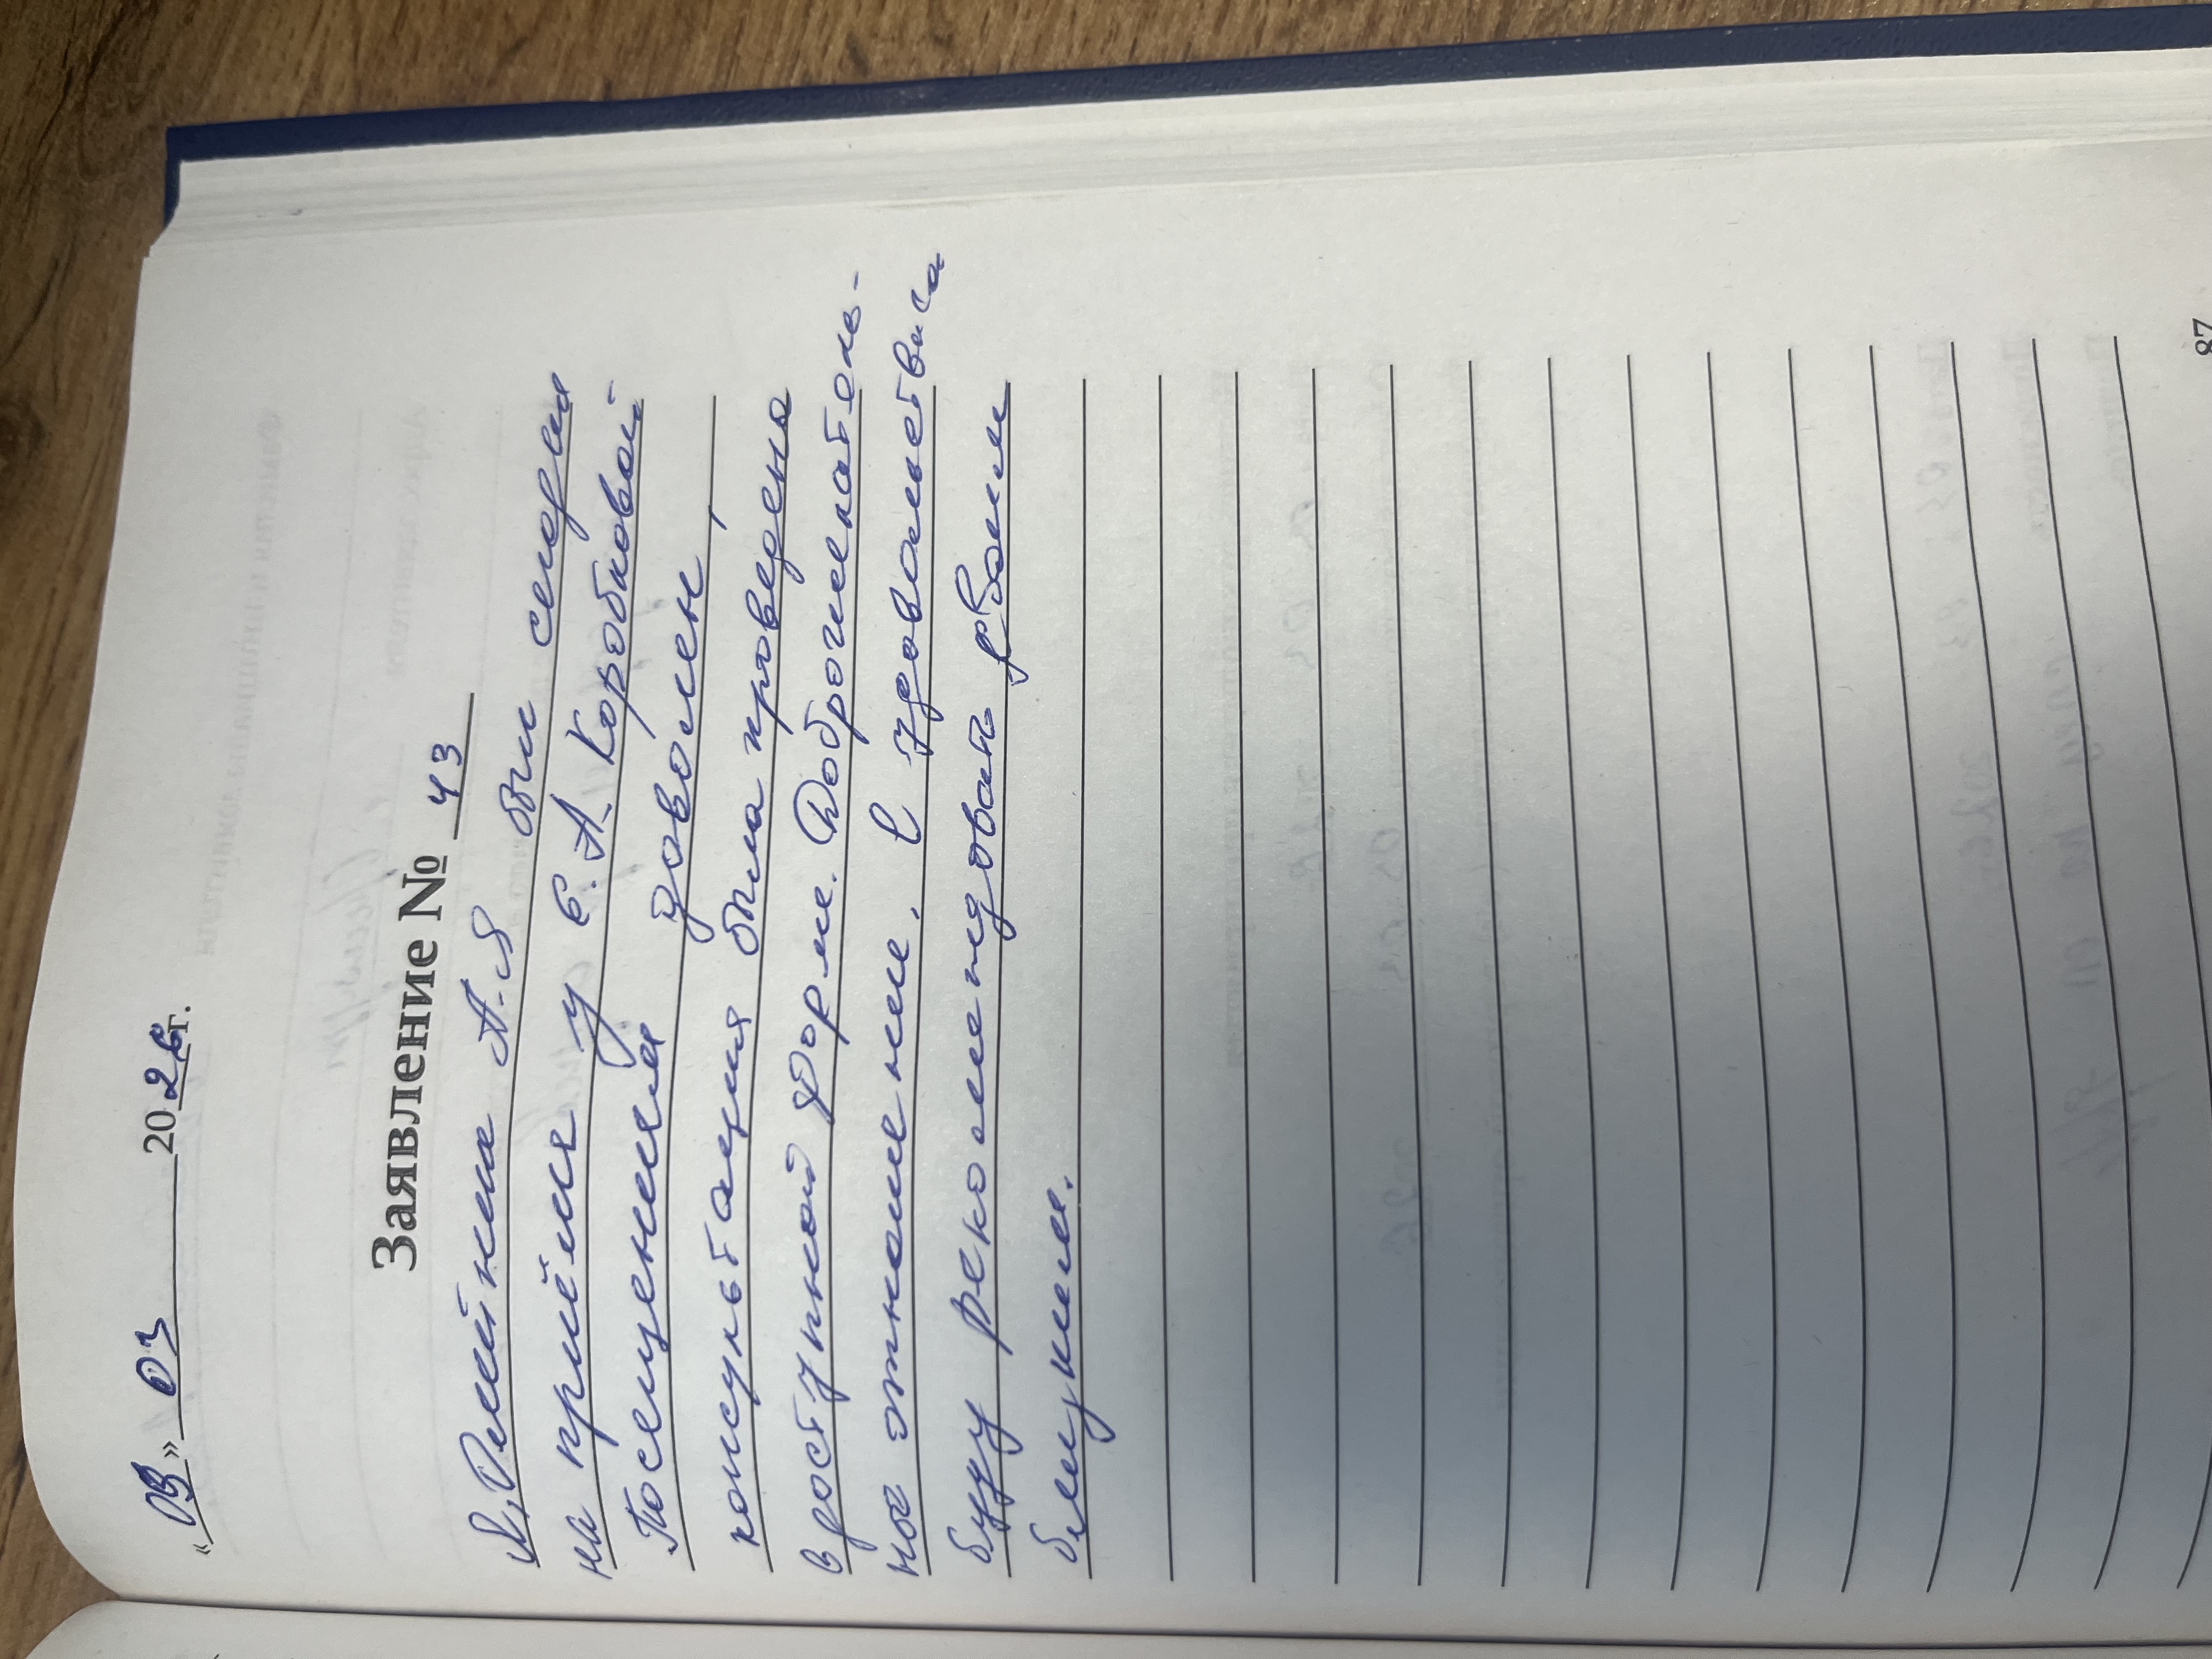 «03» 03 2026г.
Заявление № 43
Я, Рметкна А.Я был сегодня
на приёмя у Е.А. Коробковой
Посещением доволен,
консультация была проведена
в доступной форме. Доброжелатель-
ное отношение. С удовольствием
буду рекомендовать своим
близким.
87